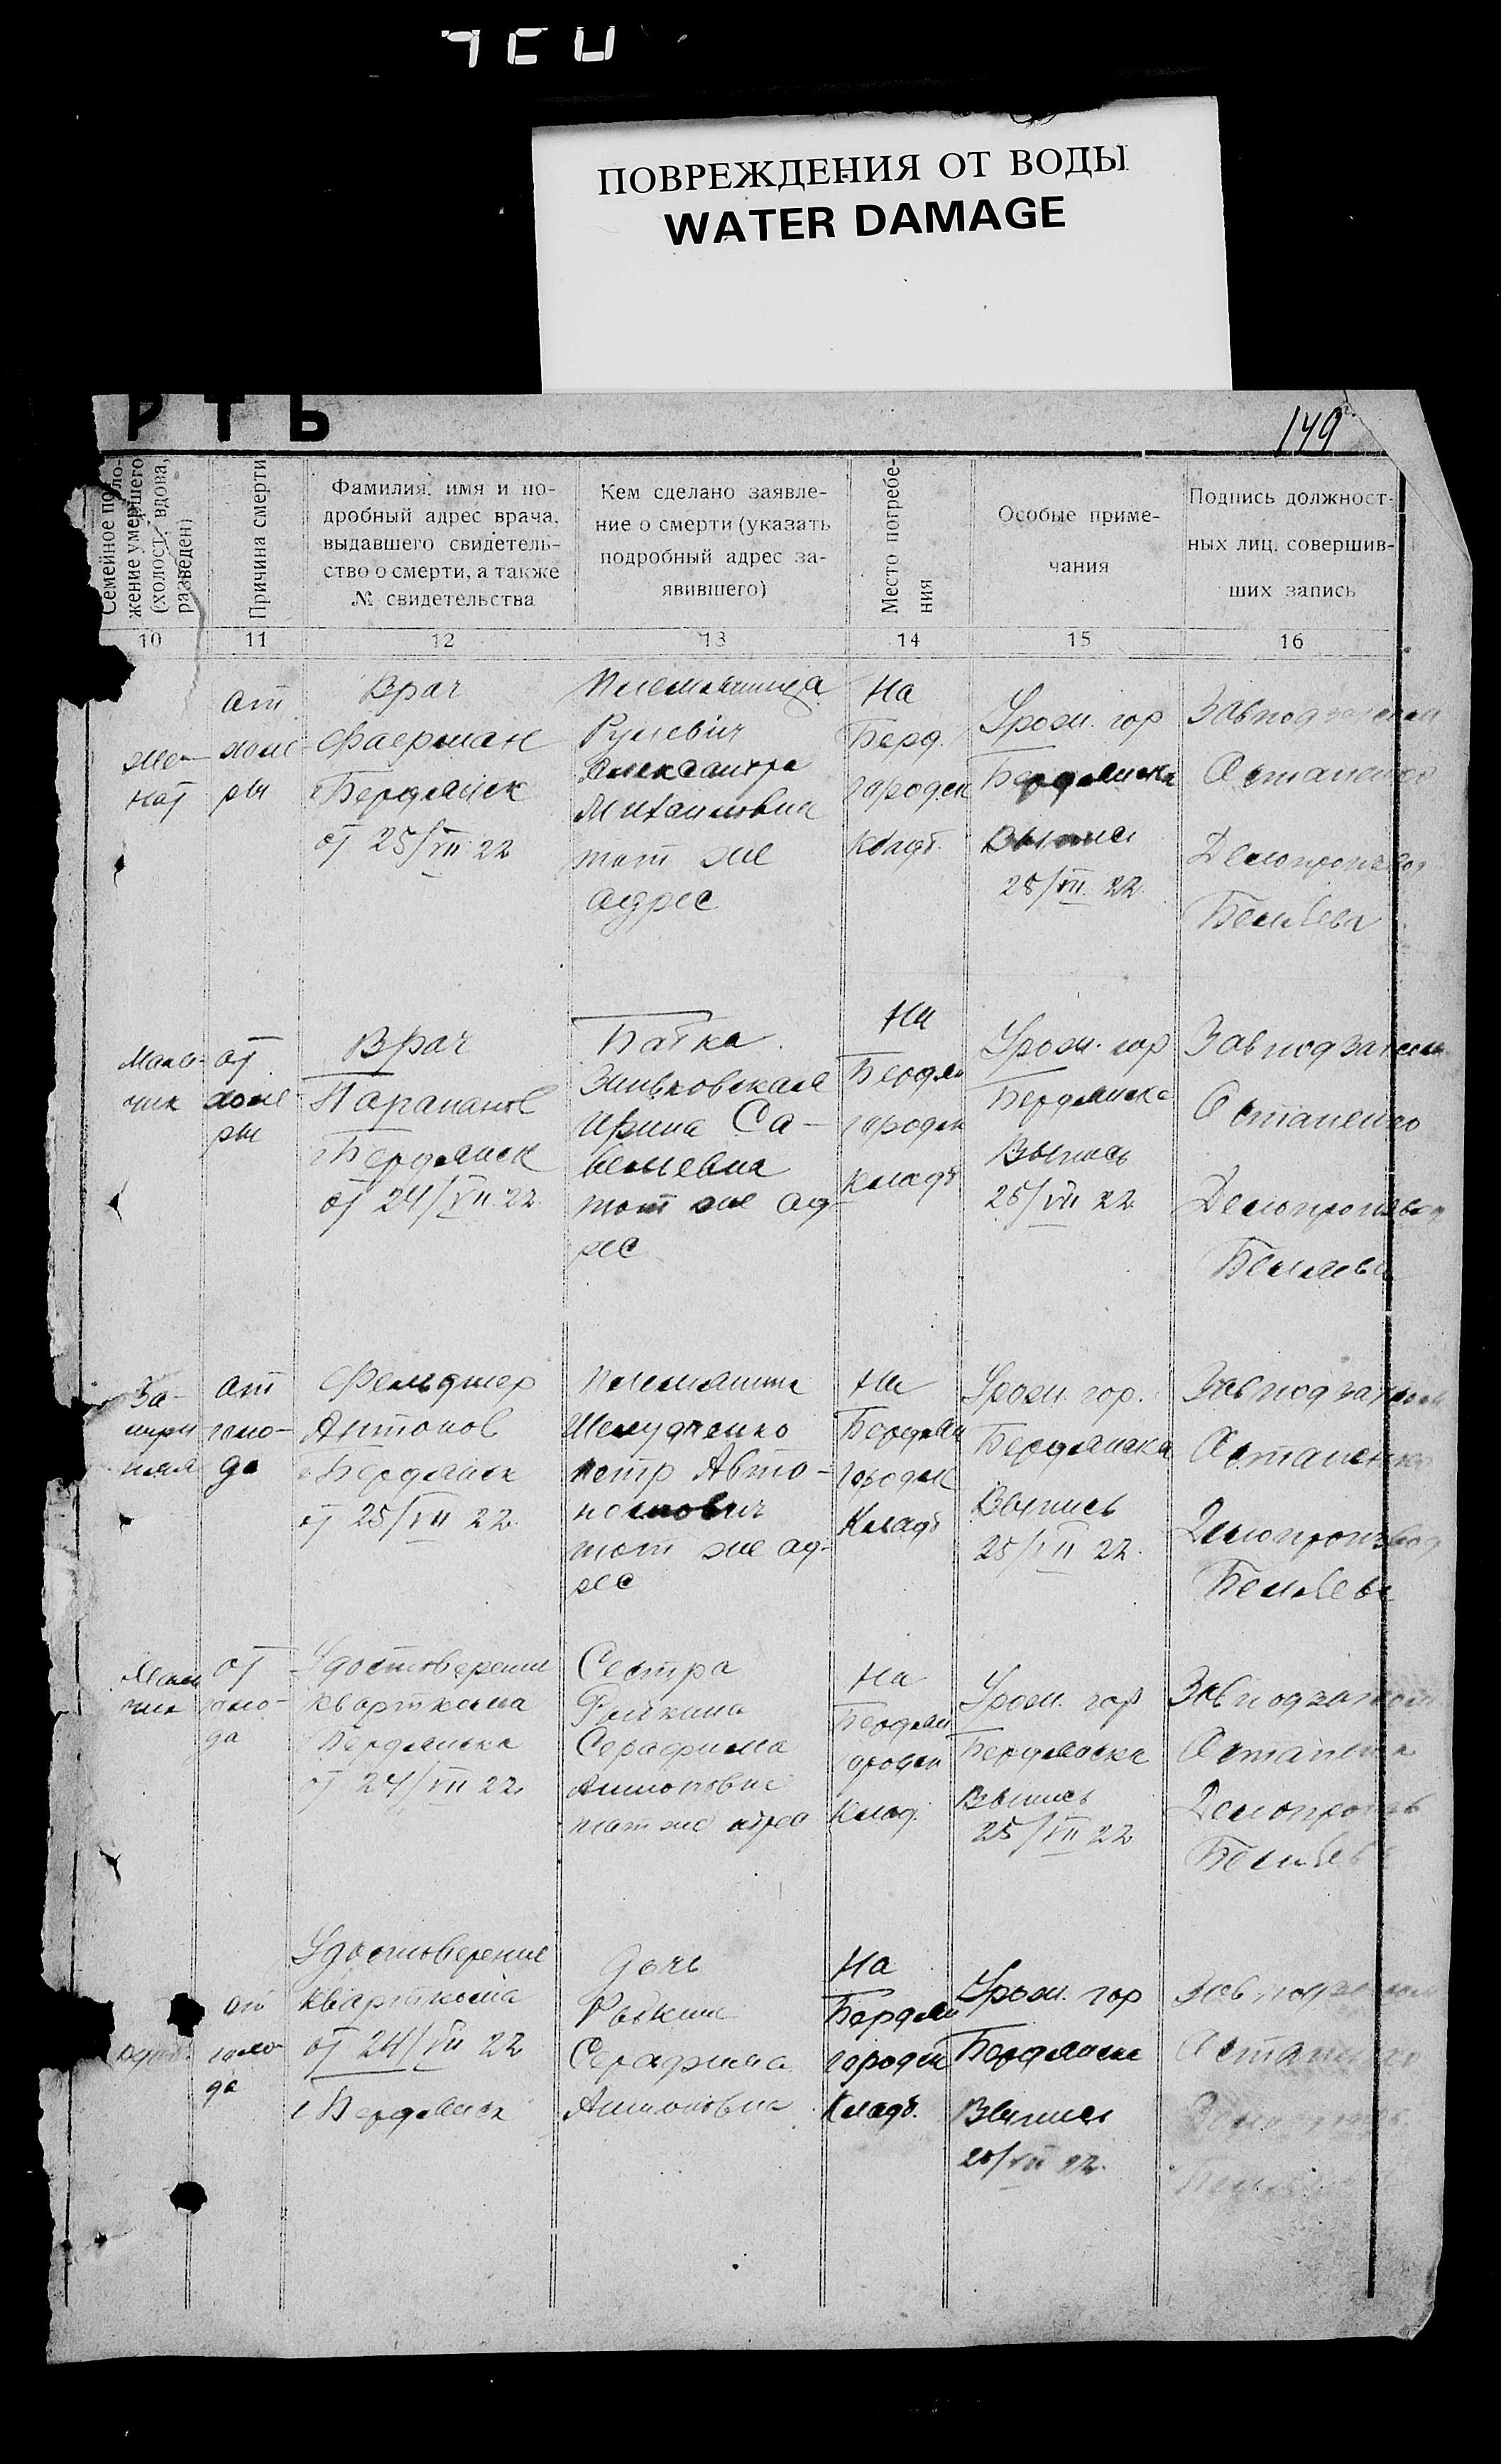 ПОВРЕЖДЕНИЯ ОТ ВОДЫ
WATER DAMAGE
РТЬ
149
Семейное поло-
жение умершего
(холост, вдова,
разведен)
Причина смерти
Фамилия, имя и по-
дробный адрес врача,
выдавшего свидетель-
ство о смерти, а также
№ свидетельства
Кем сделано заявле-
ние о смерти (указать
подробный адрес за-
явившего)
Место погребе-
ния
Особые приме-
чания
Подпись должност-
ных лиц, совершив-
ших запись
10 11 12 13 14 15 16
же-
нат
от
холе
ры
Врач
Фаерман
г Бердянск
от 25/VII 22
Племянница
Александра
Михайловна
тот же
адрес
На
Берд.
городск
Урож. гор
Бердянска
Выпись
25/VII 22
Завподзагсом
Остапенко
Делопроизвод
Беляева
Мало-
от
холе
ры
Врач
г Бердянск
от 24/VII 22
Бабка
Зиньковская
Ирина Са-
вельевна
тот же ад-
рес
На
Бердян
городск
кладб
Урож. гор
Бердянска
Выпись
25/VII 22
Завподзагсом
Остапенко
Делопроизвод
Беляева
За-
от
голо-
да
Фельдшер
Антонов
г Бердянск
от 25/VII 22
Шелудченко
Петр Авто-
номович
тот же ад-
рес
На
Бердян
городск
Кладб
Урож. гор.
Бердянска
Выпись
25/VII 22.
Завподзагсом
Остапенко
Делопроизвод
Беляева
от
голо-
да
Удостоверение
кварткома
г Бердянска
от 24/VII 22
Сестра
Серафима
Антоновна
тот же адрес
На
Бердян
городск
Клад.
Урож. гор
Бердянска
Выпись
25/VII 22
Завподзагсом
Остапенко
Делопроизв
Беляева
от
голо-
да
Удостоверение
кварткома
от 24/VII 22
г Бердянск
Дочь
Серафима
Антоновна
На
Бердян
городск
Кладб.
Урож. гор
Бердянска
Выпись
25/VII 22.
Остапенко